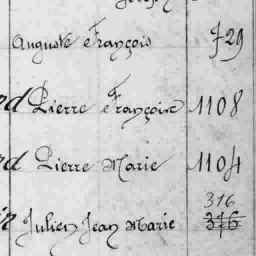 Auguste François 729
Pierre Françoise 1108
Pierre Marie 1104
316
Julien Jean Marie 316